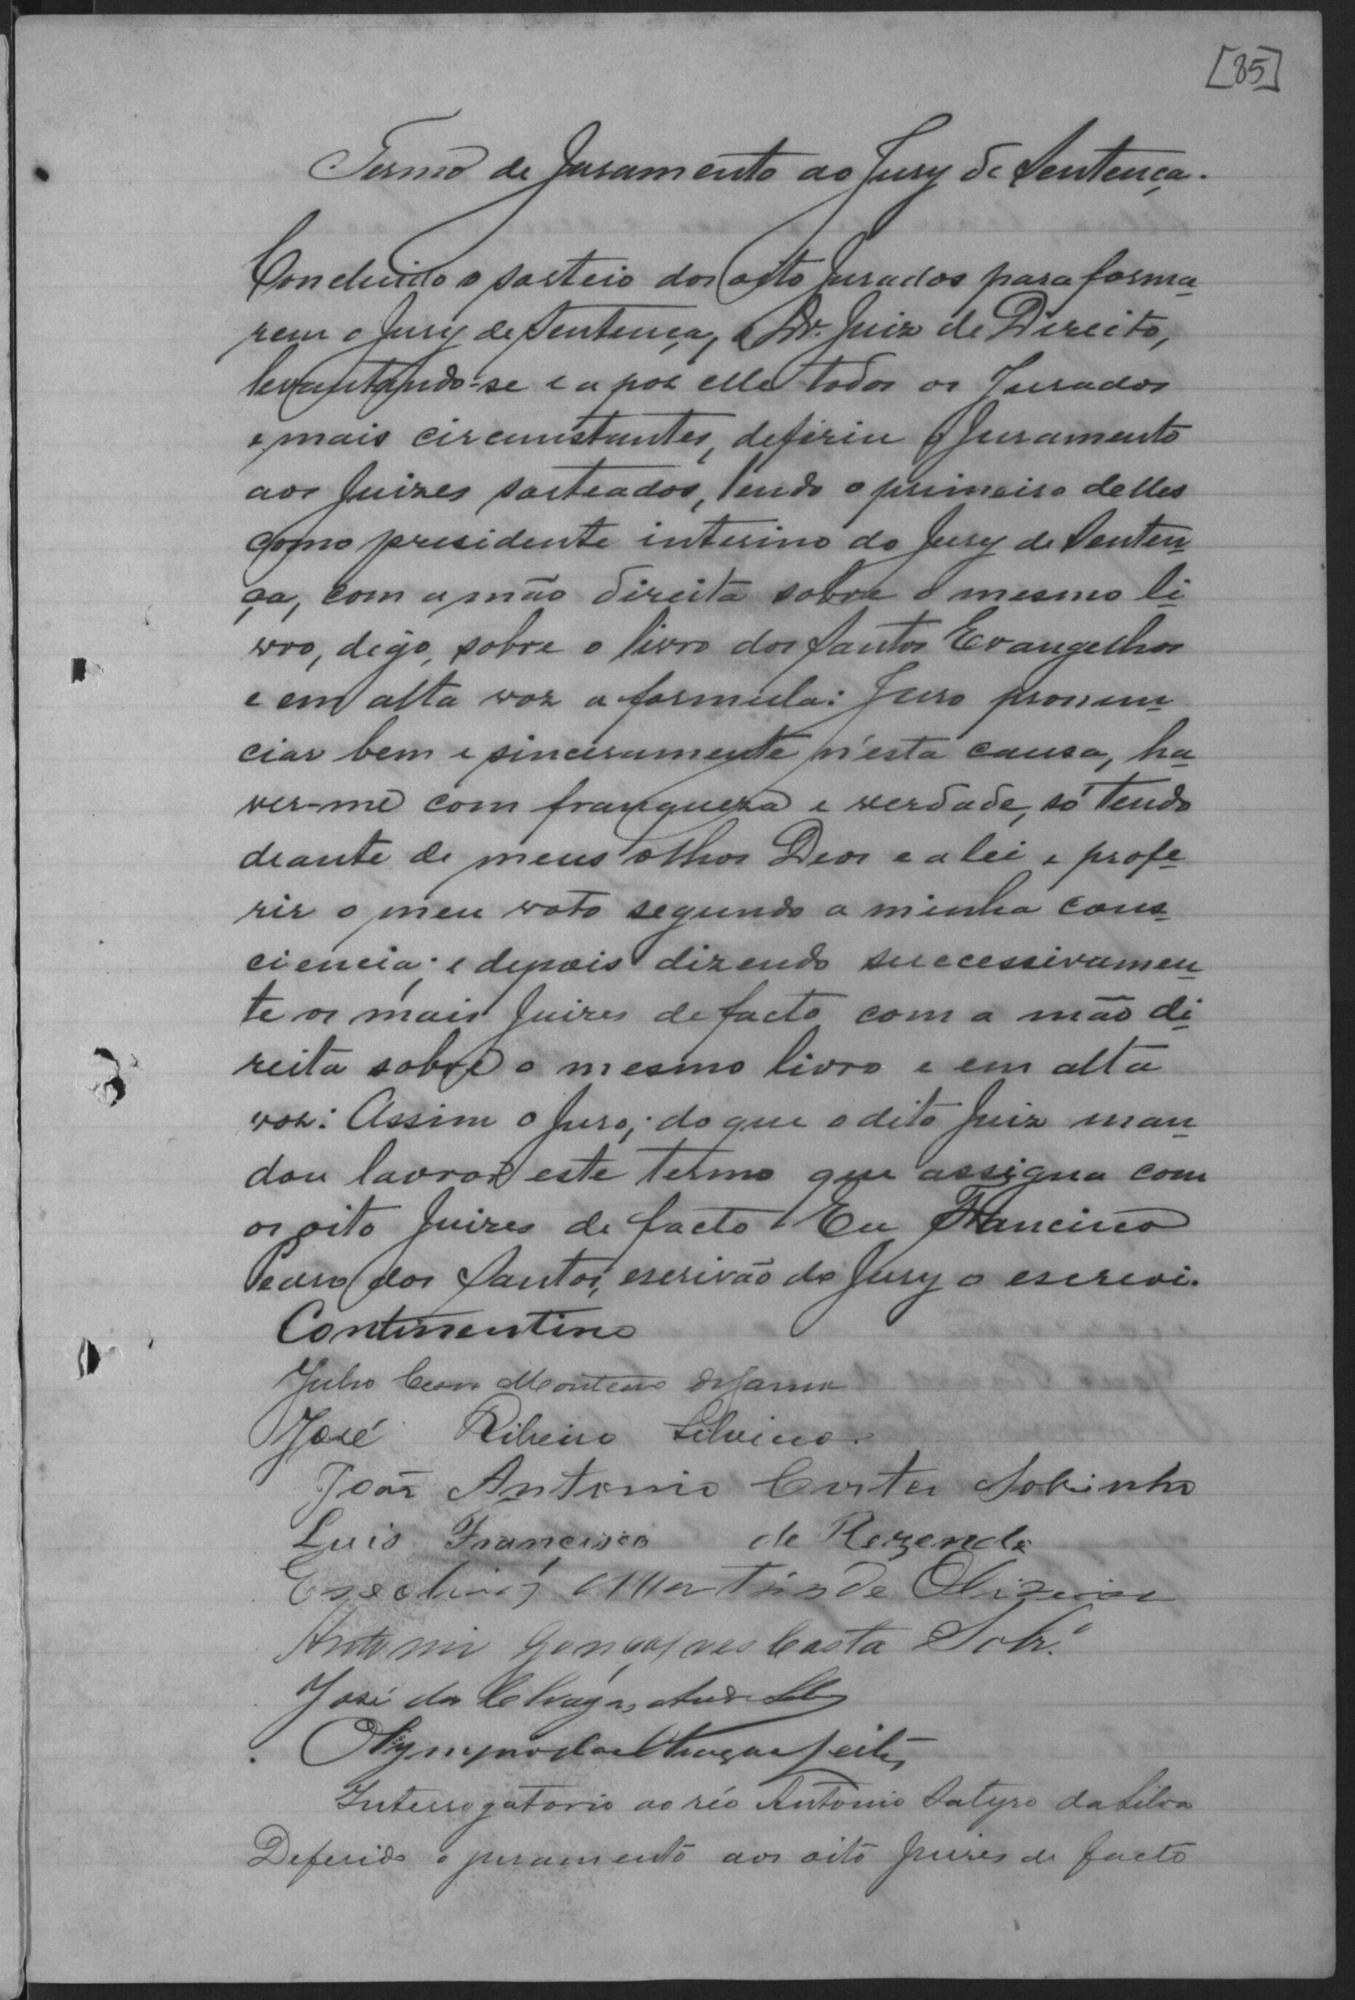 [85]
Termo de Juramento ao Jury de Sentença.
Concluido o sorteio dos oito Jurados para forma-
rem o Jury de Sentença, o Dr. Juiz de Direito,
levantando-se e apoz elle todos os Jurados
e mais circumstantes, deferiu o Juramento
aos Juizes sorteados, lendo o primeiro delles
como presidente interino do Jury de Senten-
ça, com a mão direita sobre o mesmo li-
vro, digo, sobre o livro dos Santos Evangelhos
e em alta voz a formula: Juro pronun-
ciar bem e sinceramente n'esta causa, ha-
ver-me com franqueza e verdade, só tendo
deante de meus olhos Deos e a lei e profe-
rir o meu voto segundo a minha cons-
ciencia; e depois dizendo successivamen-
te os mais Juizes de facto com a mão di-
reita sobre o mesmo livro e em alta
voz: Assim o Juro; do que o dito Juiz man-
dou lavrar este termo que assigna com
os oito Juizes de facto. Eu Francisco
Pedro dos Santos, escrivão do Jury o escrevi.
Continentino
Julio Cesar Monteiro de
José Ribeiro Silvino.
João Antonio Sobrinho
Luis Francisco de Rezende
Martins de Oliveira
Antonio Gonçalves Costa Sobr.º
José das Chagas
Olympio das Chagas
Interrogatorio ao réo Antonio Satyro da Silva
Deferido o juramento aos oito Juizes de facto